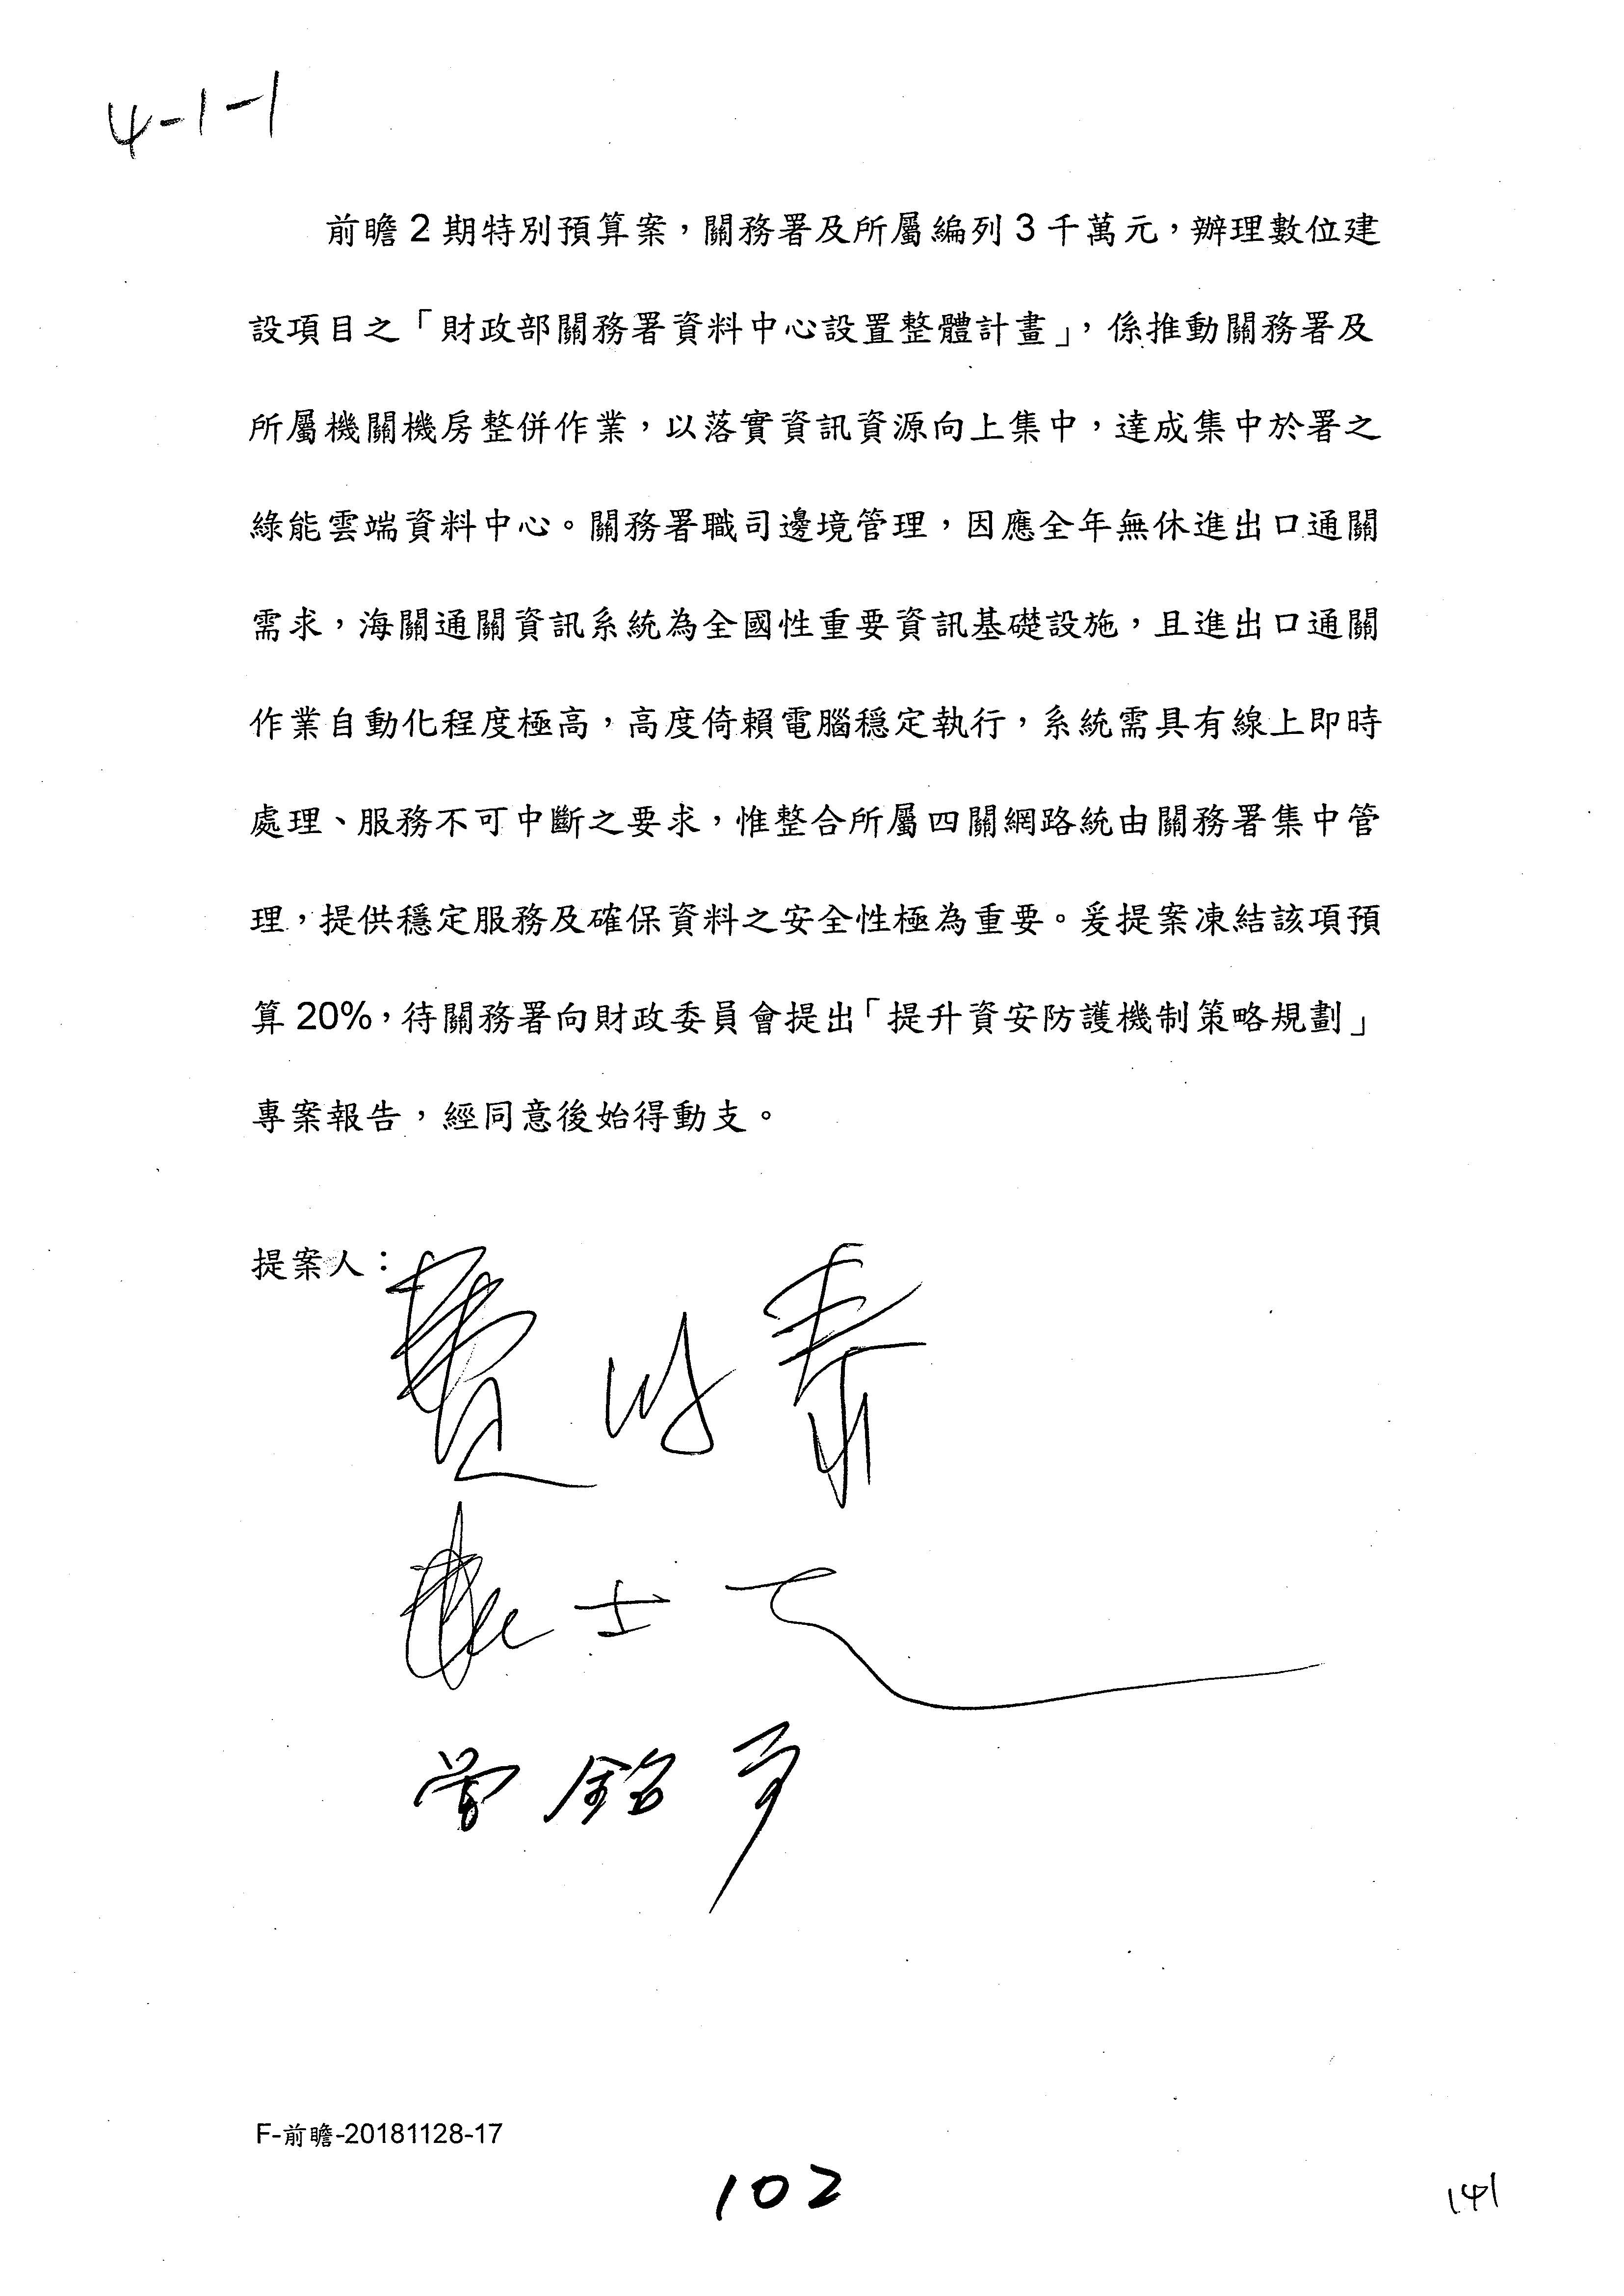 4-1-1
前瞻2期特別預算案，關務署及所屬編列3千萬元，辦理數位建
設項目之「財政部關務署資料中心設置整體計畫」，係推動關務署及
所屬機關機房整併作業，以落實資訊資源向上集中，達成集中於署之
綠能雲端資料中心。關務署職司邊境管理，因應全年無休進出口通關
需求，海關通關資訊系統為全國性重要資訊基礎設施，且進出口通關
作業自動化程度極高，高度倚賴電腦穩定執行，系統需具有線上即時
處理、服務不可中斷之要求，惟整合所屬四關網路統由關務署集中管
理，提供穩定服務及確保資料之安全性極為重要。爰提案凍結該項預
算20%，待關務署向財政委員會提出「提升資安防護機制策略規劃」
專案報告，經同意後始得動支。
提案人：
曾銘宗
F-前瞻-20181128-17
102
141